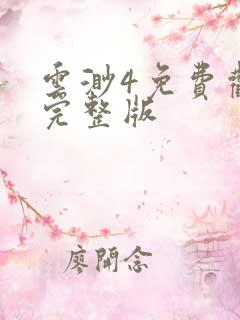 雲渺4免費
完整版
廖開念